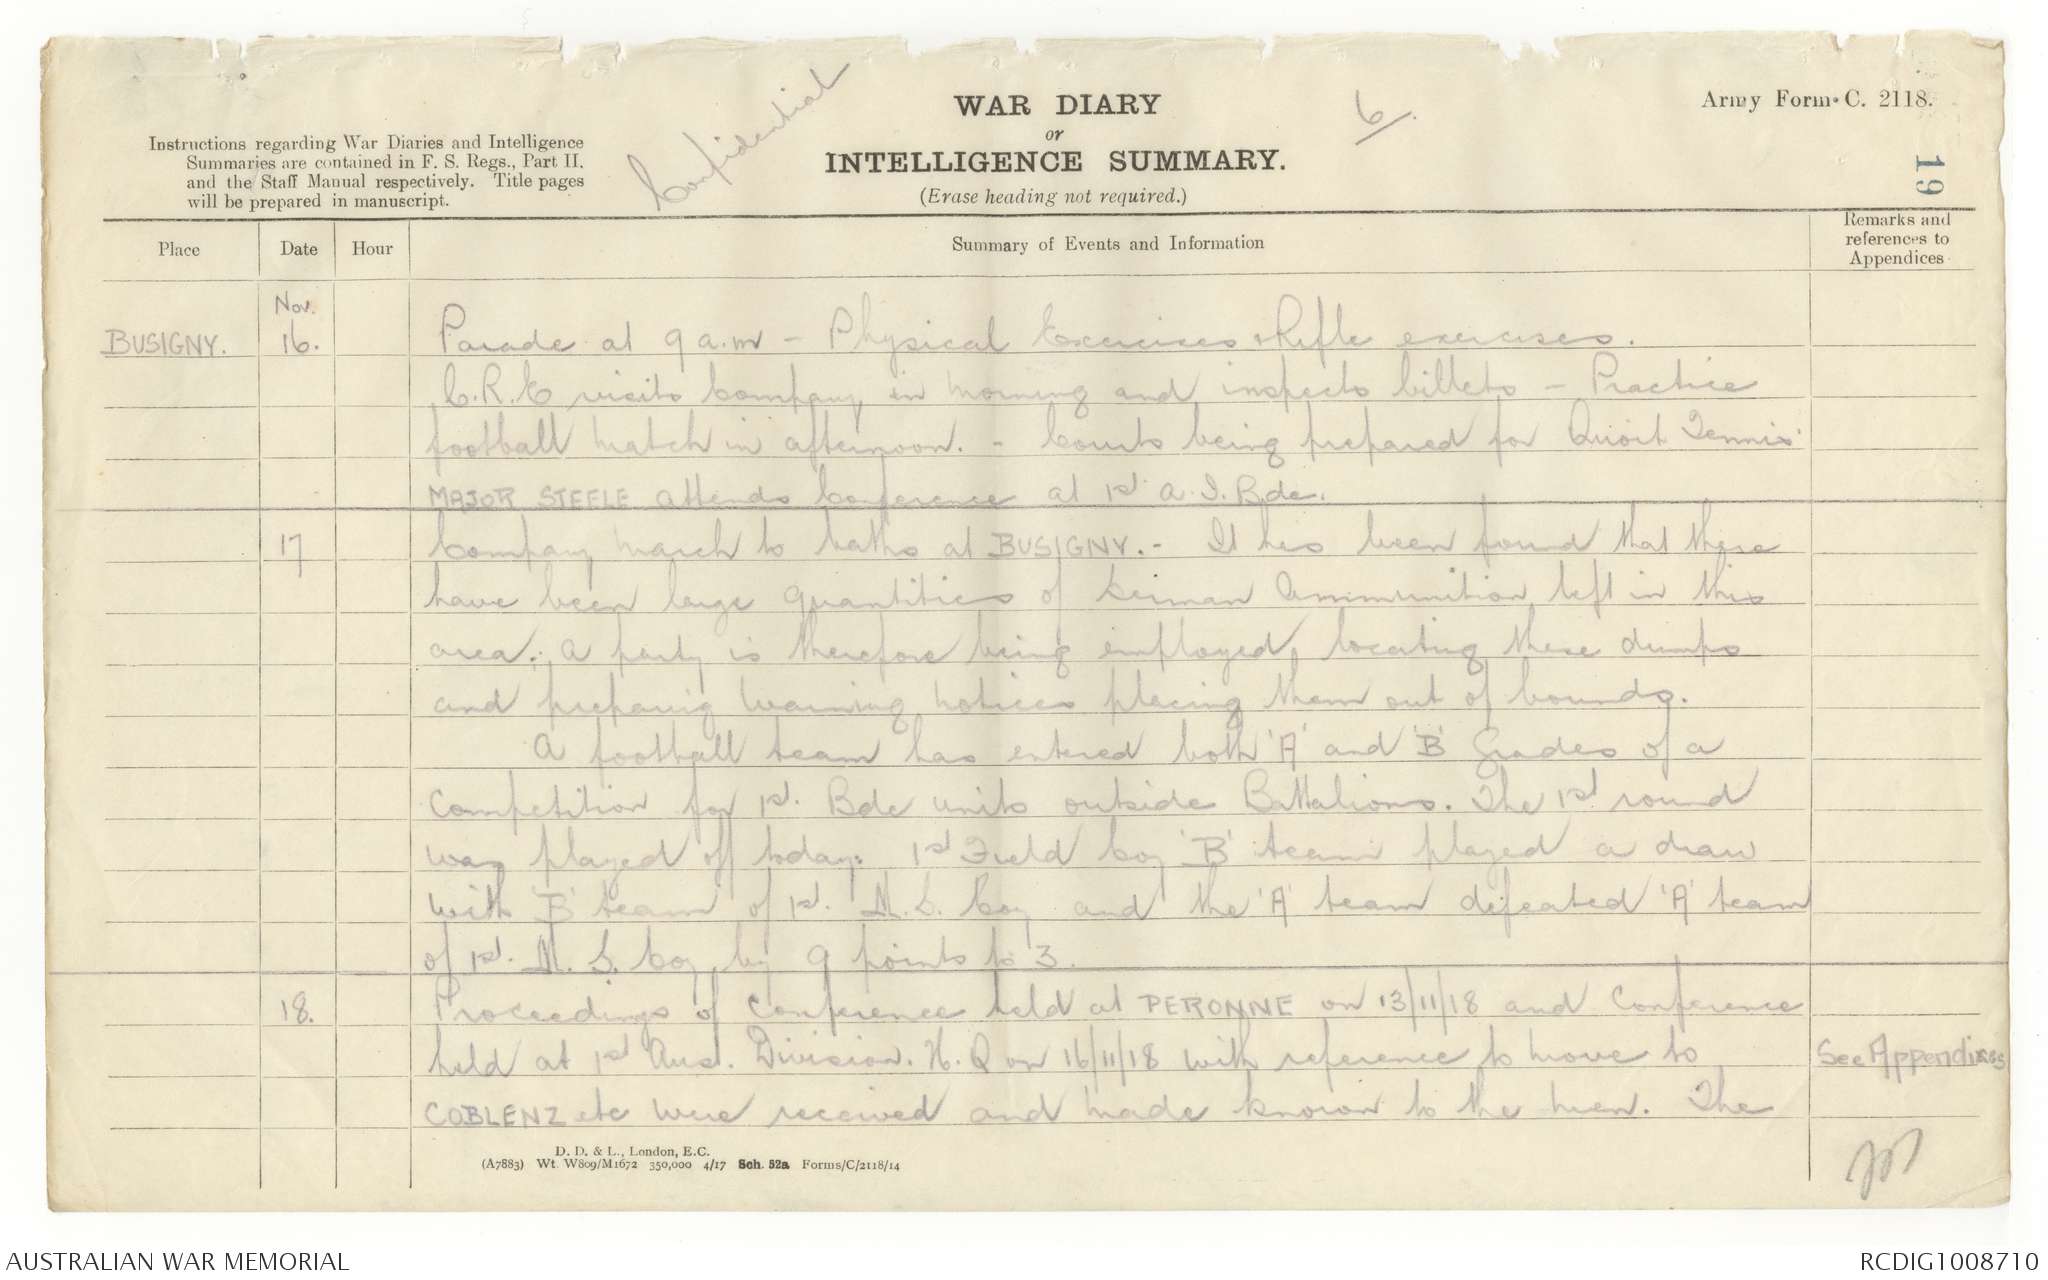 Confidential
WAR DIARY
or
INTELLIGENCE SUMMARY.
(Erase heading not required.)
6/.
Army Form C. 2118.
19
Instructions regarding War Diaries and Intelligence
Summaries are contained in F. S. Regs., Part II.
and the Staff Manual respectively. Title pages
will be prepared in manuscript.
Place Date Hour Summary of Events and Information Remarks and references to Appendices
Nov.
BUSIGNY. 16. Parade at 9 a.m - Physical Exercises & Rifle exercises.
C.R.E visits Company in morning and inspects billets - Practice
football match in afternoon. - Courts being prepared for Quoit Tennis.
MAJOR STEELE attends Conference at 1st A.I.Bde.
17 Company march to baths at BUSIGNY. - It has been found that there
have been large quantities of German Ammunition left in this
area. A party is therefore being employed, locating these dumps
and preparing warning notices placing them out of bounds.
A football team has entered both 'A' and 'B' Grades of a
competition for 1st. Bde units outside Battalions. The 1st round
was played off today. 1st Field Coy 'B' team played a draw
with 'B' team of 1st. M.G. Coy and the 'A' team defeated 'A' team
of 1st. M.G. Coy by 9 points to 3.
18. Proceedings of Conference held at PERONNE on 13/11/18 and Conference
held at 1st Aus. Division. H.Q on 16/11/18 with reference to move to See Appendixes
COBLENZ etc were received and made known to the men. The
D. D. & L., London, E.C.
(A7883) Wt. W809/M1672 350,000 4/17 Sch. 52a Forms/C/2118/14
AUSTRALIAN WAR MEMORIAL
RCDIG1008710